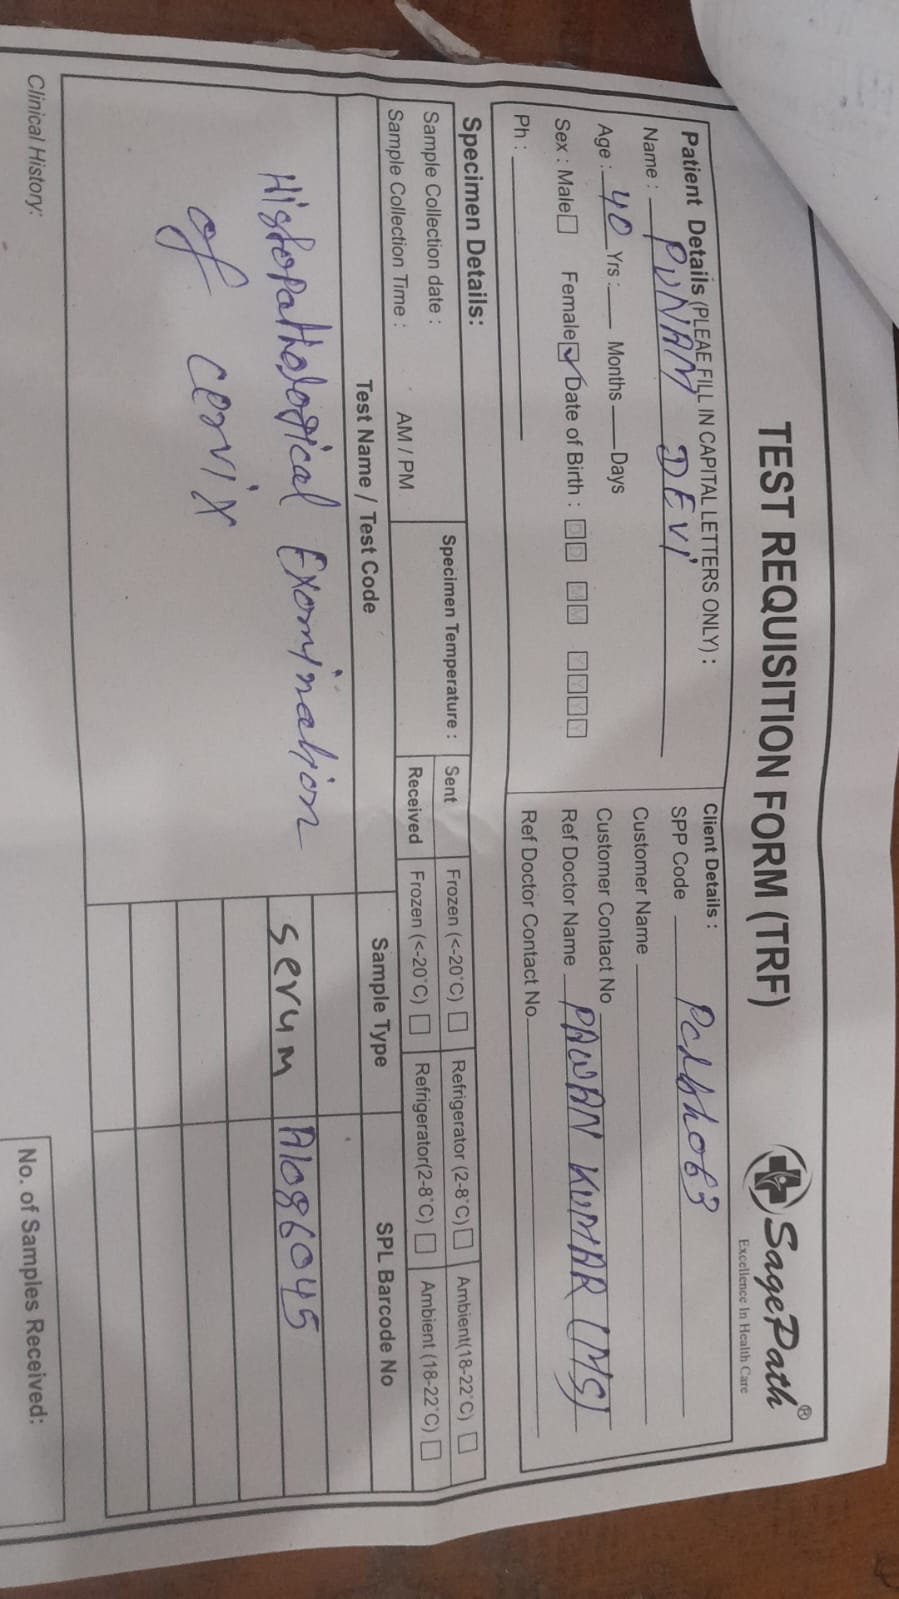 TEST REQUISITION FORM (TRF)
SagePath®
Excellence In Health Care
Patient Details (PLEAE FILL IN CAPITAL LETTERS ONLY) :
Name : PUNAM DEVI
Age : 40 Yrs : Months Days
Sex : Male Female Date of Birth : DD MM YYYY
Ph :
Client Details :
SPP Code
Customer Name
Customer Contact No
Ref Doctor Name PAWAN KUMAR (MS)
Ref Doctor Contact No
Specimen Details:
Sample Collection date :
Sample Collection Time : AM / PM
Specimen Temperature :
Sent Frozen (<-20°C) Refrigerator (2-8°C) Ambient(18-22°C)
Received Frozen (<-20°C) Refrigerator(2-8°C) Ambient (18-22°C)
Test Name / Test Code Sample Type SPL Barcode No
Histopathological Examination serum A1086045
of cervix
Clinical History:
No. of Samples Received: